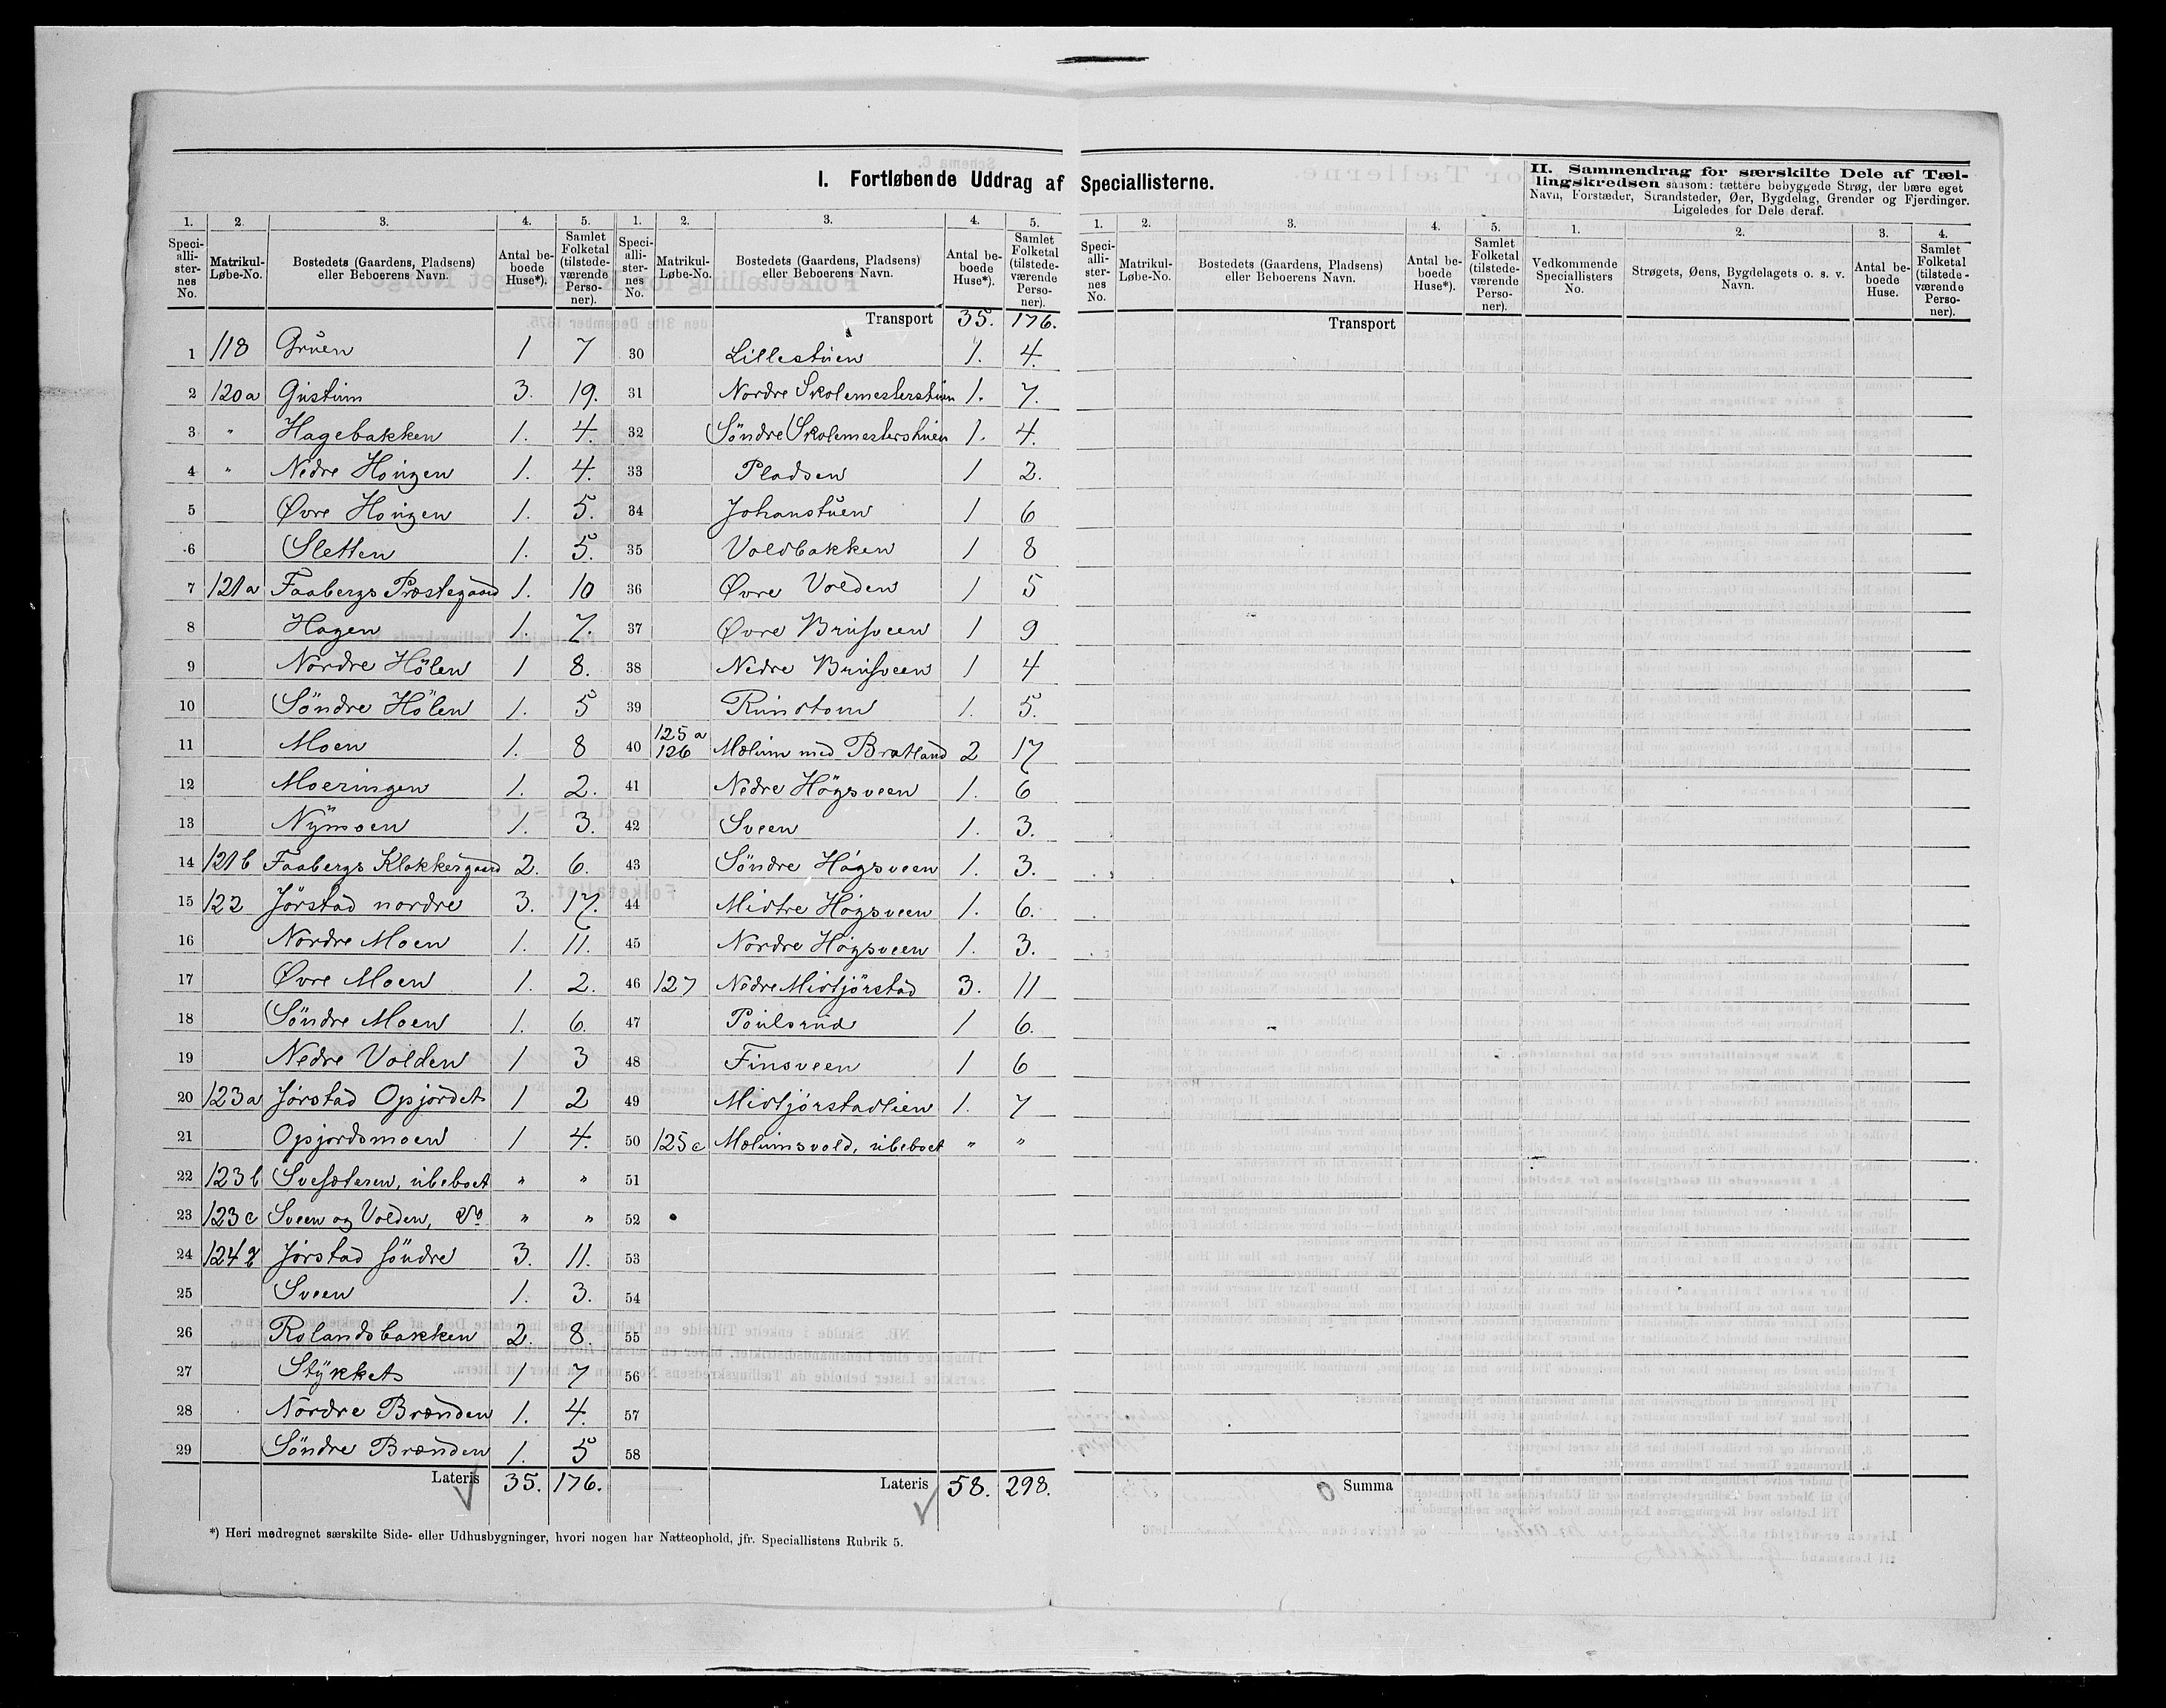 I. Fortløbende Uddrag af Speciallisterne.
II. Sammendrag for særskilte Dele af Tæl-
lingskredsen saasom: tættere bebyggede Strøg, der bære eget
Navn, Forstæder, Strandsteder, Øer, Bygdelag, Grender og Fjerdinger.
Ligeledes for Dele deraf.
1. 2. 3. 4. 5.
Speci-alli-ster-nes No. Matrikul-Løbe-No. Bostedets (Gaardens, Pladsens) eller Beboerens Navn. Antal be-boede Huse*). Samlet Folketal (tilstede-værende Perso-ner).
1 118 Gruen 1 7
2 120a Gustum 3. 19.
3 " Hagebakken 1. 4.
4 " Nedre Hougen 1. 4.
5 Øvre Hougen 1. 5.
6 Sletten 1. 5.
7 121a Faabergs Præstegaard 1. 10
8 Hagen 1. 7.
9 Nordre Hölen 1 8.
10 Söndre Hölen 1. 5
11 Moen 1. 8
12 Moeringen 1. 2.
13 Nymoen 1. 3.
14 121b Faabergs Klokkergaard 2. 6.
15 122 Jörstad nordre 3. 17.
16 Nordre Moen 1. 11.
17 Øvre Moen 1. 2.
18 Söndre Moen 1. 6.
19 Nedre Volden 1 3
20 123a Jörstad Opjordet 1 2
21 Opjordsmoen 1 4.
22 123b Svesæteren, ubeboet " "
23 123c Sveen og Volden, Do " "
24 124 Jörstad söndre 3. 11.
25 Sveen 1. 3.
26 Rolandsbakken 2. 8.
27 Stykket 1 7
28 Nordre Brænden 1. 4.
29 Söndre Brænden 1. 5
Lateris 35. 176.
1. 2. 3. 4. 5.
Speci-alli-ster-nes No. Matrikul-Løbe-No. Bostedets (Gaardens, Pladsens) eller Beboerens Navn. Antal be-boede Huse*). Samlet Folketal (tilstede-værende Perso-ner).
Transport 35. 176.
30 Lillestuen 1. 4.
31 Nordre Skolemesterstuen 1. 7.
32 Söndre Skolemesterstuen 1. 4.
33 Pladsen 1 2.
34 Johanstuen 1 6
35 Voldbakken 1 8
36 Øvre Volden 1 5
37 Øvre Brusveen 1 9
38 Nedre Brusveen 1 4
39 Rundtom 1. 5.
40 125a 126 Mælum med Bratland 2 17
41 Nedre Högsveen 1. 6
42 Sveen 1. 3.
43 Söndre Högsveen 1. 3.
44 Midtre Högsveen 1. 6.
45 Nordre Högsveen 1. 3.
46 127 Nedre Midtjörstad 3. 11
47 Poulsrud 1 6.
48 Finsveen 1 6
49 Midtjörstadlien 1. 7
50 125c Mælumsvold, ubeboet " "
51
52
53
54
55
56
57
58
Lateris 58. 298.
1. 2. 3. 4. 5.
Speci-alli-ster-nes No. Matrikul-Løbe-No. Bostedets (Gaardens, Pladsens) eller Beboerens Navn. Antal be-boede Huse*). Samlet Folketal (tilstede-værende Perso-ner).
Transport
0 Summa
1. 2. 3. 4.
Vedkommende Speciallisters No. Strøgets, Øens, Bygdelagets o. s. v. Navn. Antal be-boede Huse. Samlet Folketal (tilstede-værende Perso-ner).
*) Heri medregnet særskilte Side- eller Udhusbygninger, hvori nogen har Natteophold, jfr. Speciallistens Rubrik 5.